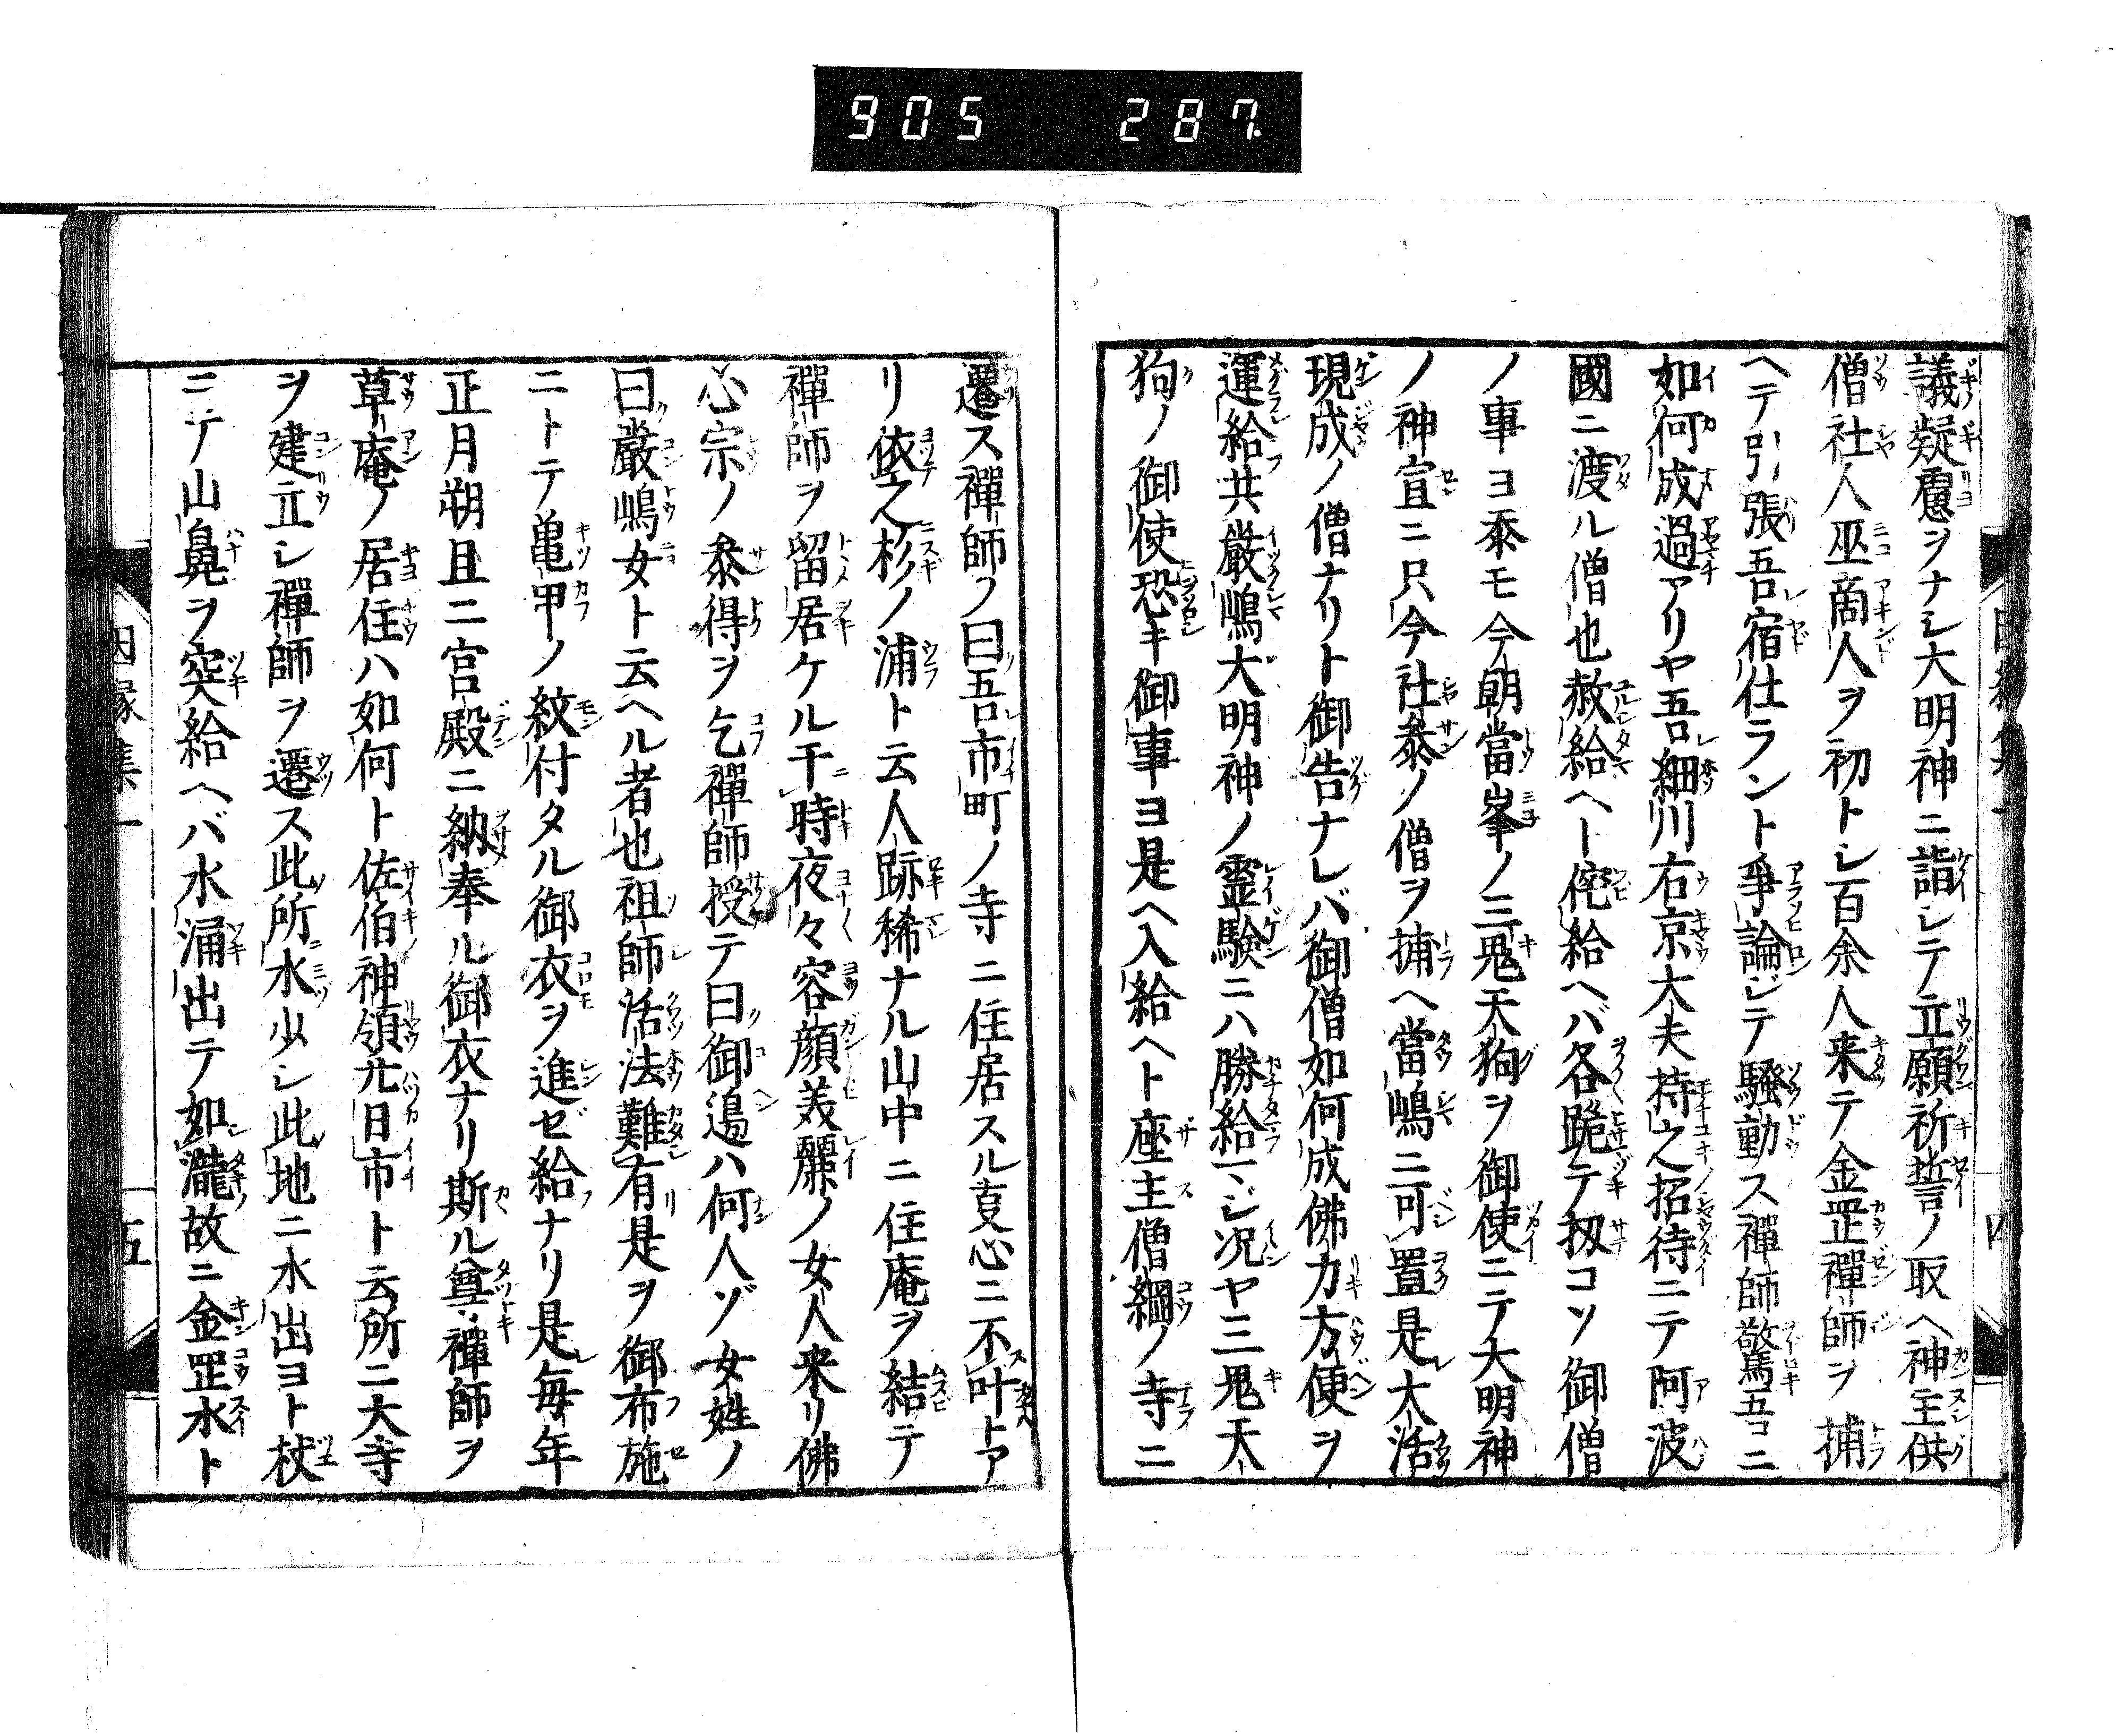 905 287
議疑慮ヲナシ大明神ニ詣シテ立願祈誓ノ取ヘ神主供
僧社人巫啇人ヲ初トシ百余人来テ金罡禪師ヲ捕
ヘテ引張吾宿仕ラント爭論ジテ騒動ス禪師驚吾コニ
如何成過アリヤ吾細川右京大夫持之招待ニテ阿波
國ニ渡ル僧也赦給ヘト侘給ヘバ各跪テ扨コソ御僧
ノ事ヨ忝モ今朝當峯ノ三鬼天狗ヲ御使ニテ大明神
ノ神宣ニ只今社叅ノ僧ヲ捕ヘ當嶋ニ可置是大活
現成ノ僧ナリト御告ナレバ御僧如何成佛力方便ヲ
運給共厳嶋大明神ノ霊験ニハ勝給マジ况ヤ三鬼天
狗ノ御使恐キ御事ヨ是ヘ入給ヘト座主僧綱ノ寺ニ
遷ス禪師ノ曰吾市町ノ寺ニ住居スル㕝心ニ不叶トア
リ依之杉ノ浦ト云人跡稀ナル山中ニ住庵ヲ結テ
禪師ヲ留居ケル干時夜々容顔美麗ノ女人来リ佛
心宗ノ叅得ヲ乞禪師授テ曰御邉ハ何人ゾ女姓ノ
曰嚴嶋女ト云ヘル者也祖師活法難有是ヲ御布施
ニトテ亀甲ノ紋付タル御衣ヲ進ゼ給ナリ是毎年
正月朔且ニ宮殿ニ納奉ル御衣ナリ斯ル尊禪師ヲ
草庵ノ居住ハ如何ト佐伯神領廿日市ト云所ニ大寺
ヲ建立シ禪師ヲ遷ス此所水少シ此地ニ水出ヨト杖
ニテ山鼻ヲ突給ヘバ水涌出テ如瀧故ニ金罡水ト
因縁集一
五